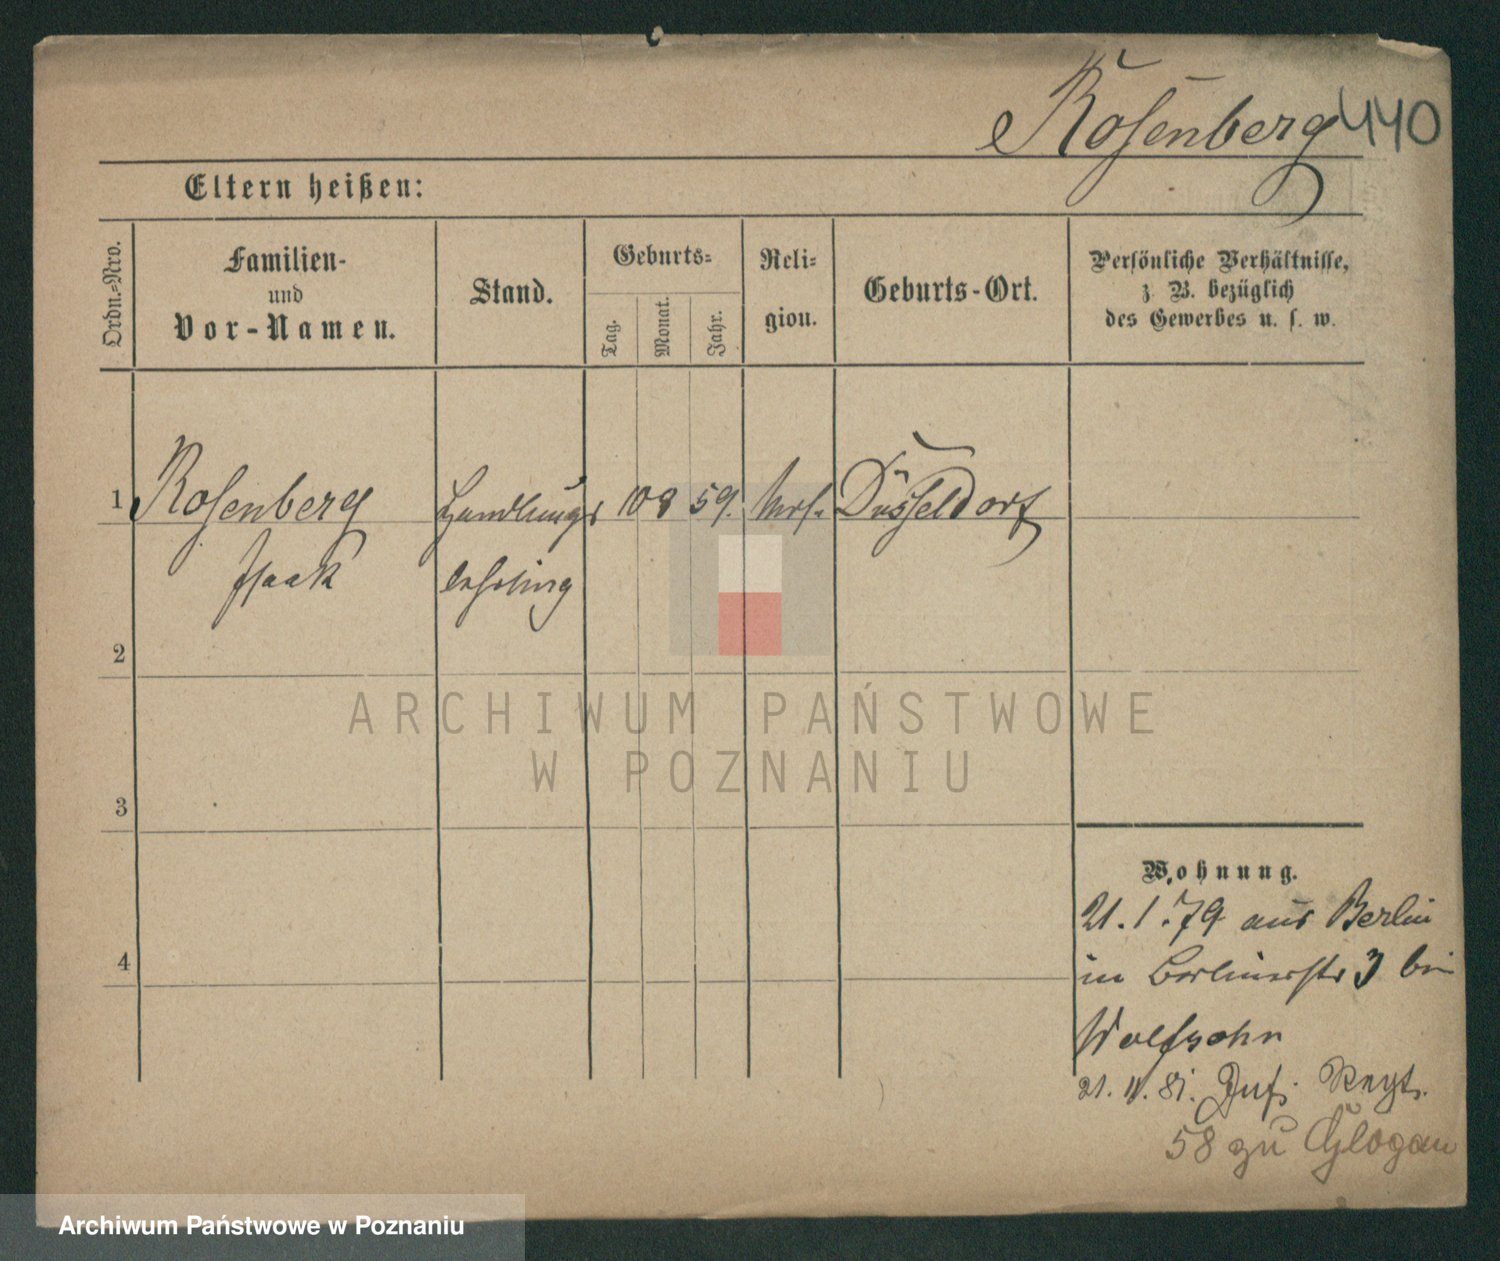 Rosenberg 440
Eltern heißen:
Ordn.-Nro.
Familien-
und
Vor-Namen.
Stand.
Geburts-
Tag.
Monat.
Jahr.
Reli-
gion.
Geburts-Ort.
Persönliche Verhältnisse,
z. B. bezüglich
des Gewerbes u. s. w.
1 Rosenberg Handlungs 10 8 59. Mos. Düsseldorf
Isaak lehrling
2
3
4
ARCHIWUM PAŃSTWOWE
W POZNANIU
Wohnung.
21.1.79 aus Berlin
in Berlinerstr 3 bei
Wolfsohn
21. 11. 81. Inf. Regt.
58 zu Glogau
Archiwum Państwowe w Poznaniu